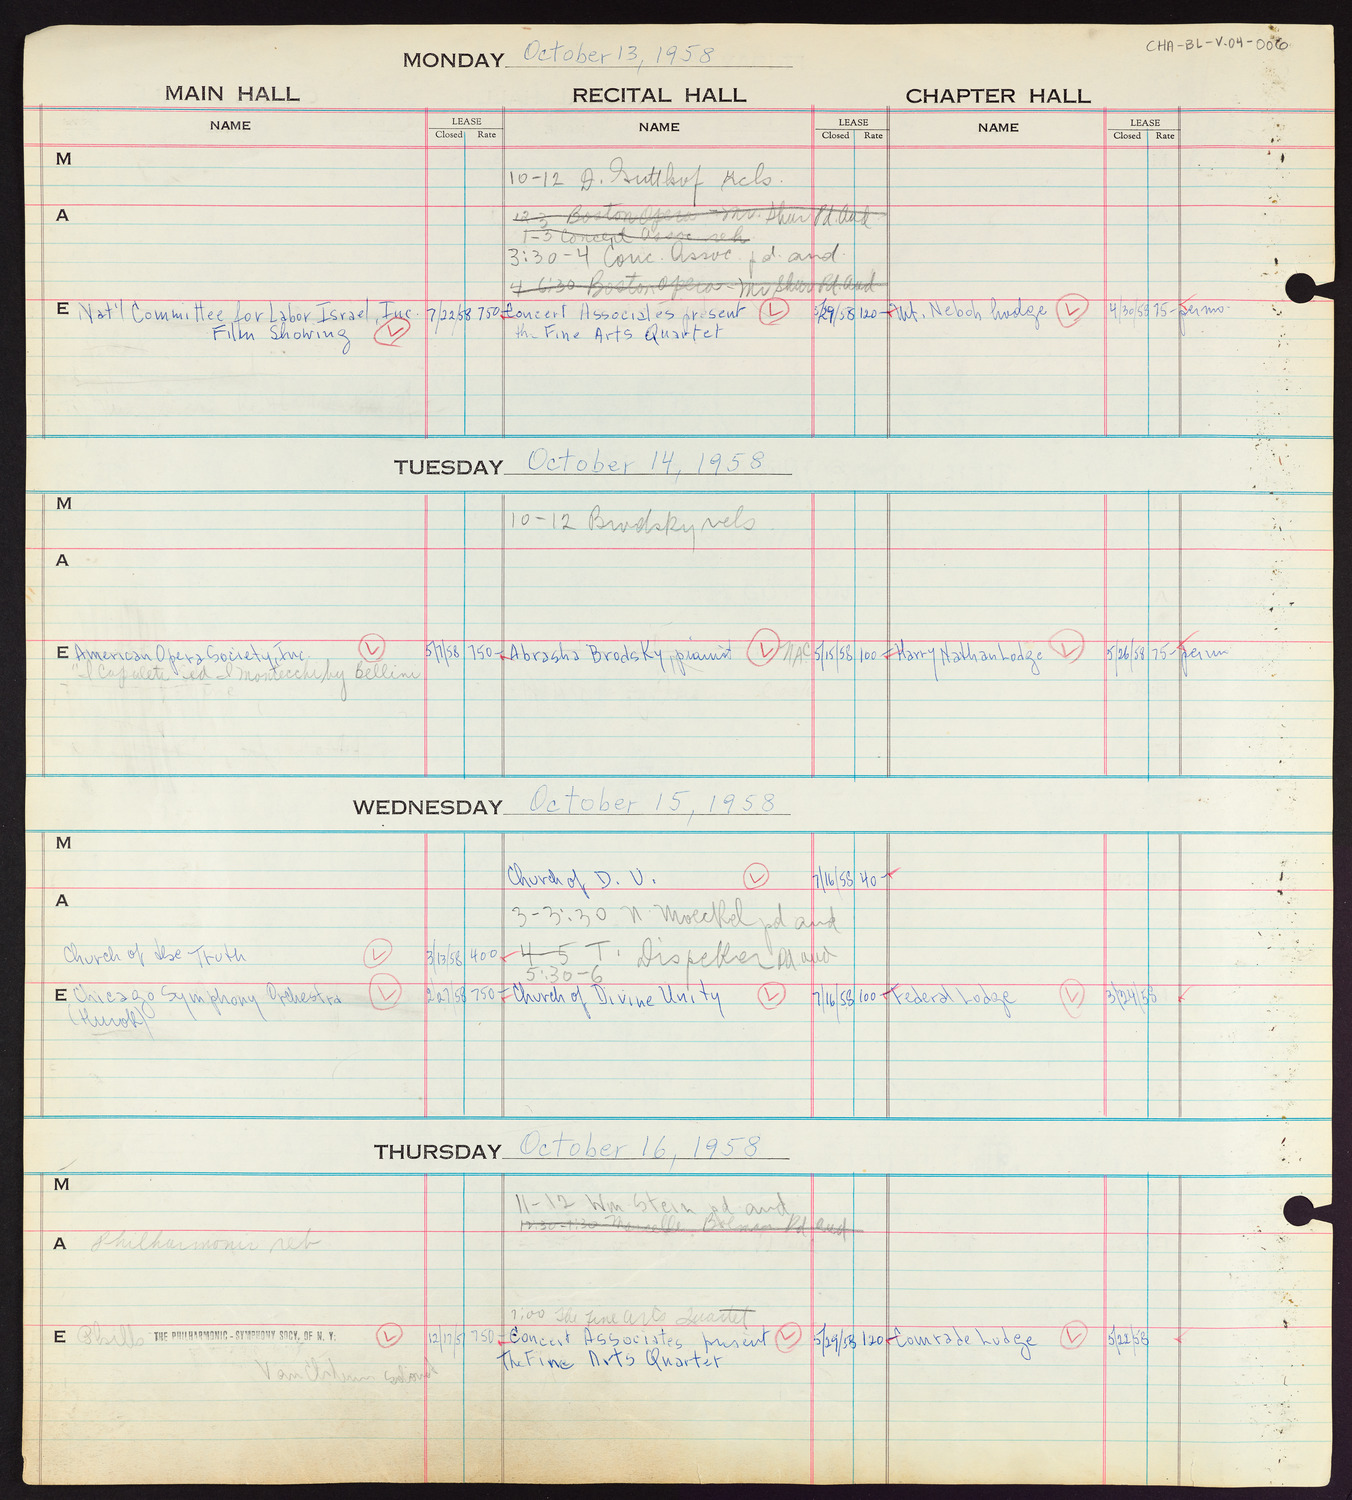 CHA-BL-V.04-006
MONDAY October 13, 1958
MAIN HALL RECITAL HALL CHAPTER HALL
NAME LEASE Closed Rate NAME LEASE Closed Rate NAME LEASE Closed Rate
M
10-12 D. Guttkof rels.
A
12-3 Boston Opera - Mr. Shur Pd. Aud
1-3 Concert Assoc. reh
3:30-4 Conc. Assoc. pd. and.
4-6:30 Boston Opera - Mr Shur Pd. Aud
E Nat'l Committee for Labor Israel, Inc. 7/22/58 750- Concert Associates present 5/29/58 120- Mt. Neboh Lodge 4/30/58 75-
Film Showing the Fine Arts Quartet
TUESDAY October 14, 1958
M
10-12 Brodsky rels
A
E American Opera Society, Inc. 5/7/58 750- Abrasha Brodsky, pianist NAC 5/15/58 100- Harry Nathan Lodge 5/26/58 75-
"I Capuleti ed I Montecchi by Bellini
WEDNESDAY October 15, 1958
M
Church of D. U. 7/16/58 40-
A
3-3:30 N. Moeckel pd and
Church of the Truth 3/13/58 400 4-5 T. Dispeker Pd and
5:30-6
E Chicago Symphony Orchestra 2/27/58 750- Church of Divine Unity 7/16/58 100- Federal Lodge 3/24/58
(Hurok)
THURSDAY October 16, 1958
M
11-12 Wm Stein pd and
12:30-1:30 Pd. and
A Philharmonic reh
7:00 The Fine Arts Quartet
E Phill THE PHILHARMONIC-SYMPHONY SOCY, OF N. Y. 12/17/57 750- Concert Associates present 5/29/58 120- Comrade Lodge 5/22/58
the Fine Arts Quartet
Van Cliburn soloist